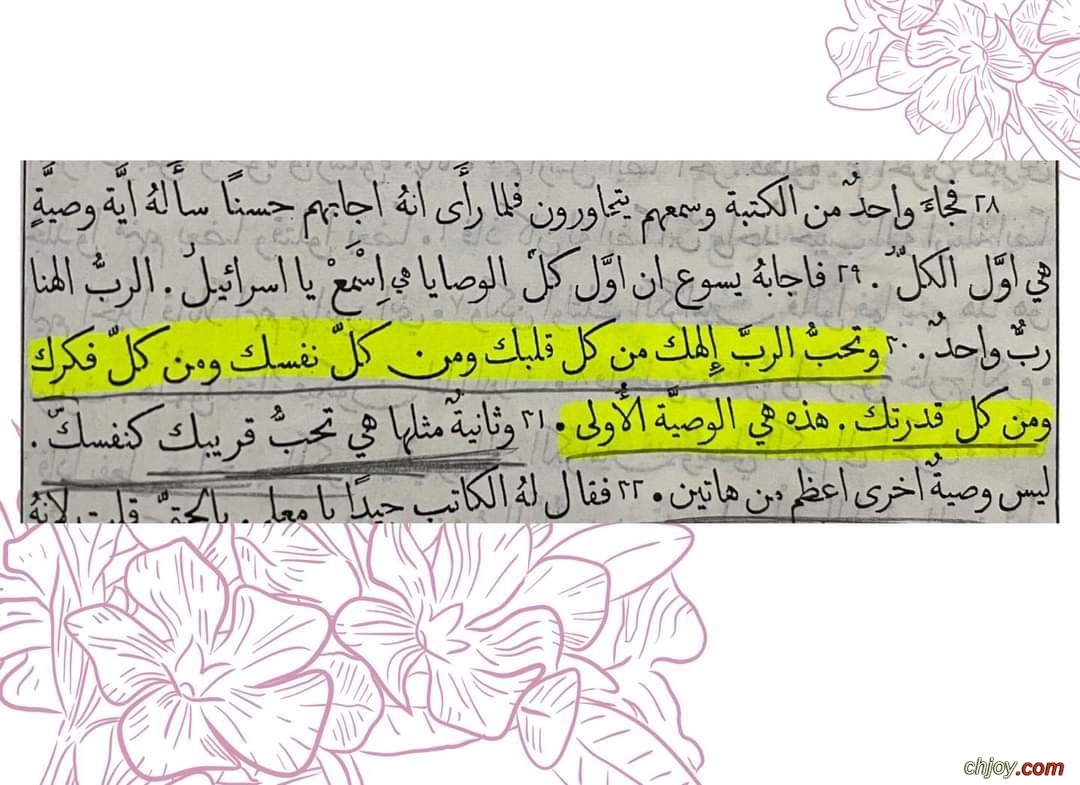 ٢٨ فجاءَ واحدٌ من الكتبة وسمعهم يتحاورون فلما رأَى انهُ اجابهم حسنًا سأَلهُ أيَّة وصيَّةٍ
هي اوَّل الكلّ. ٢٩ فاجابهُ يسوع ان اوَّل كلّ الوصايا هي اِسْمَعْ يا اسرائيل. الربُّ الهنا
ربٌّ واحدٌ. ٣٠ وتحبُّ الربَّ إِلهك من كل قلبك ومن كلّ نفسك ومن كلّ فكرك
ومن كل قدرتك. هذه هي الوصيَّة الأُولى. ٣١ وثانيةٌ مثلها هي تحبُّ قريبك كنفسك.
ليس وصيةٌ اخرى اعظم من هاتين. ٣٢ فقال لهُ الكاتب جيدًا يا معلم. بالحقّ قلت لانهُ
chjoy.com